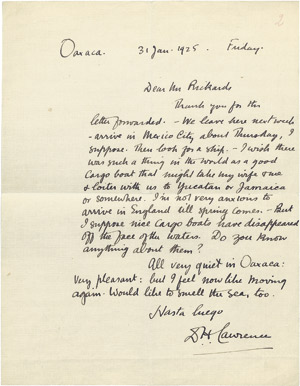 Oaxaca. 31 Jan. 1925. Friday.
Dear Mr Rickards
Thank you for the
letter forwarded. – We leave here next week
– arrive in Mexico City about Thursday, I
suppose. Then look for a ship. – I wish there
was such a thing in the world as a good
Cargo boat that might take my wife & me
& loiter with us to Yucatan or Jamaica
or somewhere. I'm not very anxious to
arrive in England till spring comes. – But
I suppose nice Cargo boats have disappeared
off the face of the waters. Do you know
anything about them?
All very quiet in Oaxaca:
very pleasant: but I feel now like moving
again. Would like to smell the sea, too.
Hasta luego
D H Lawrence